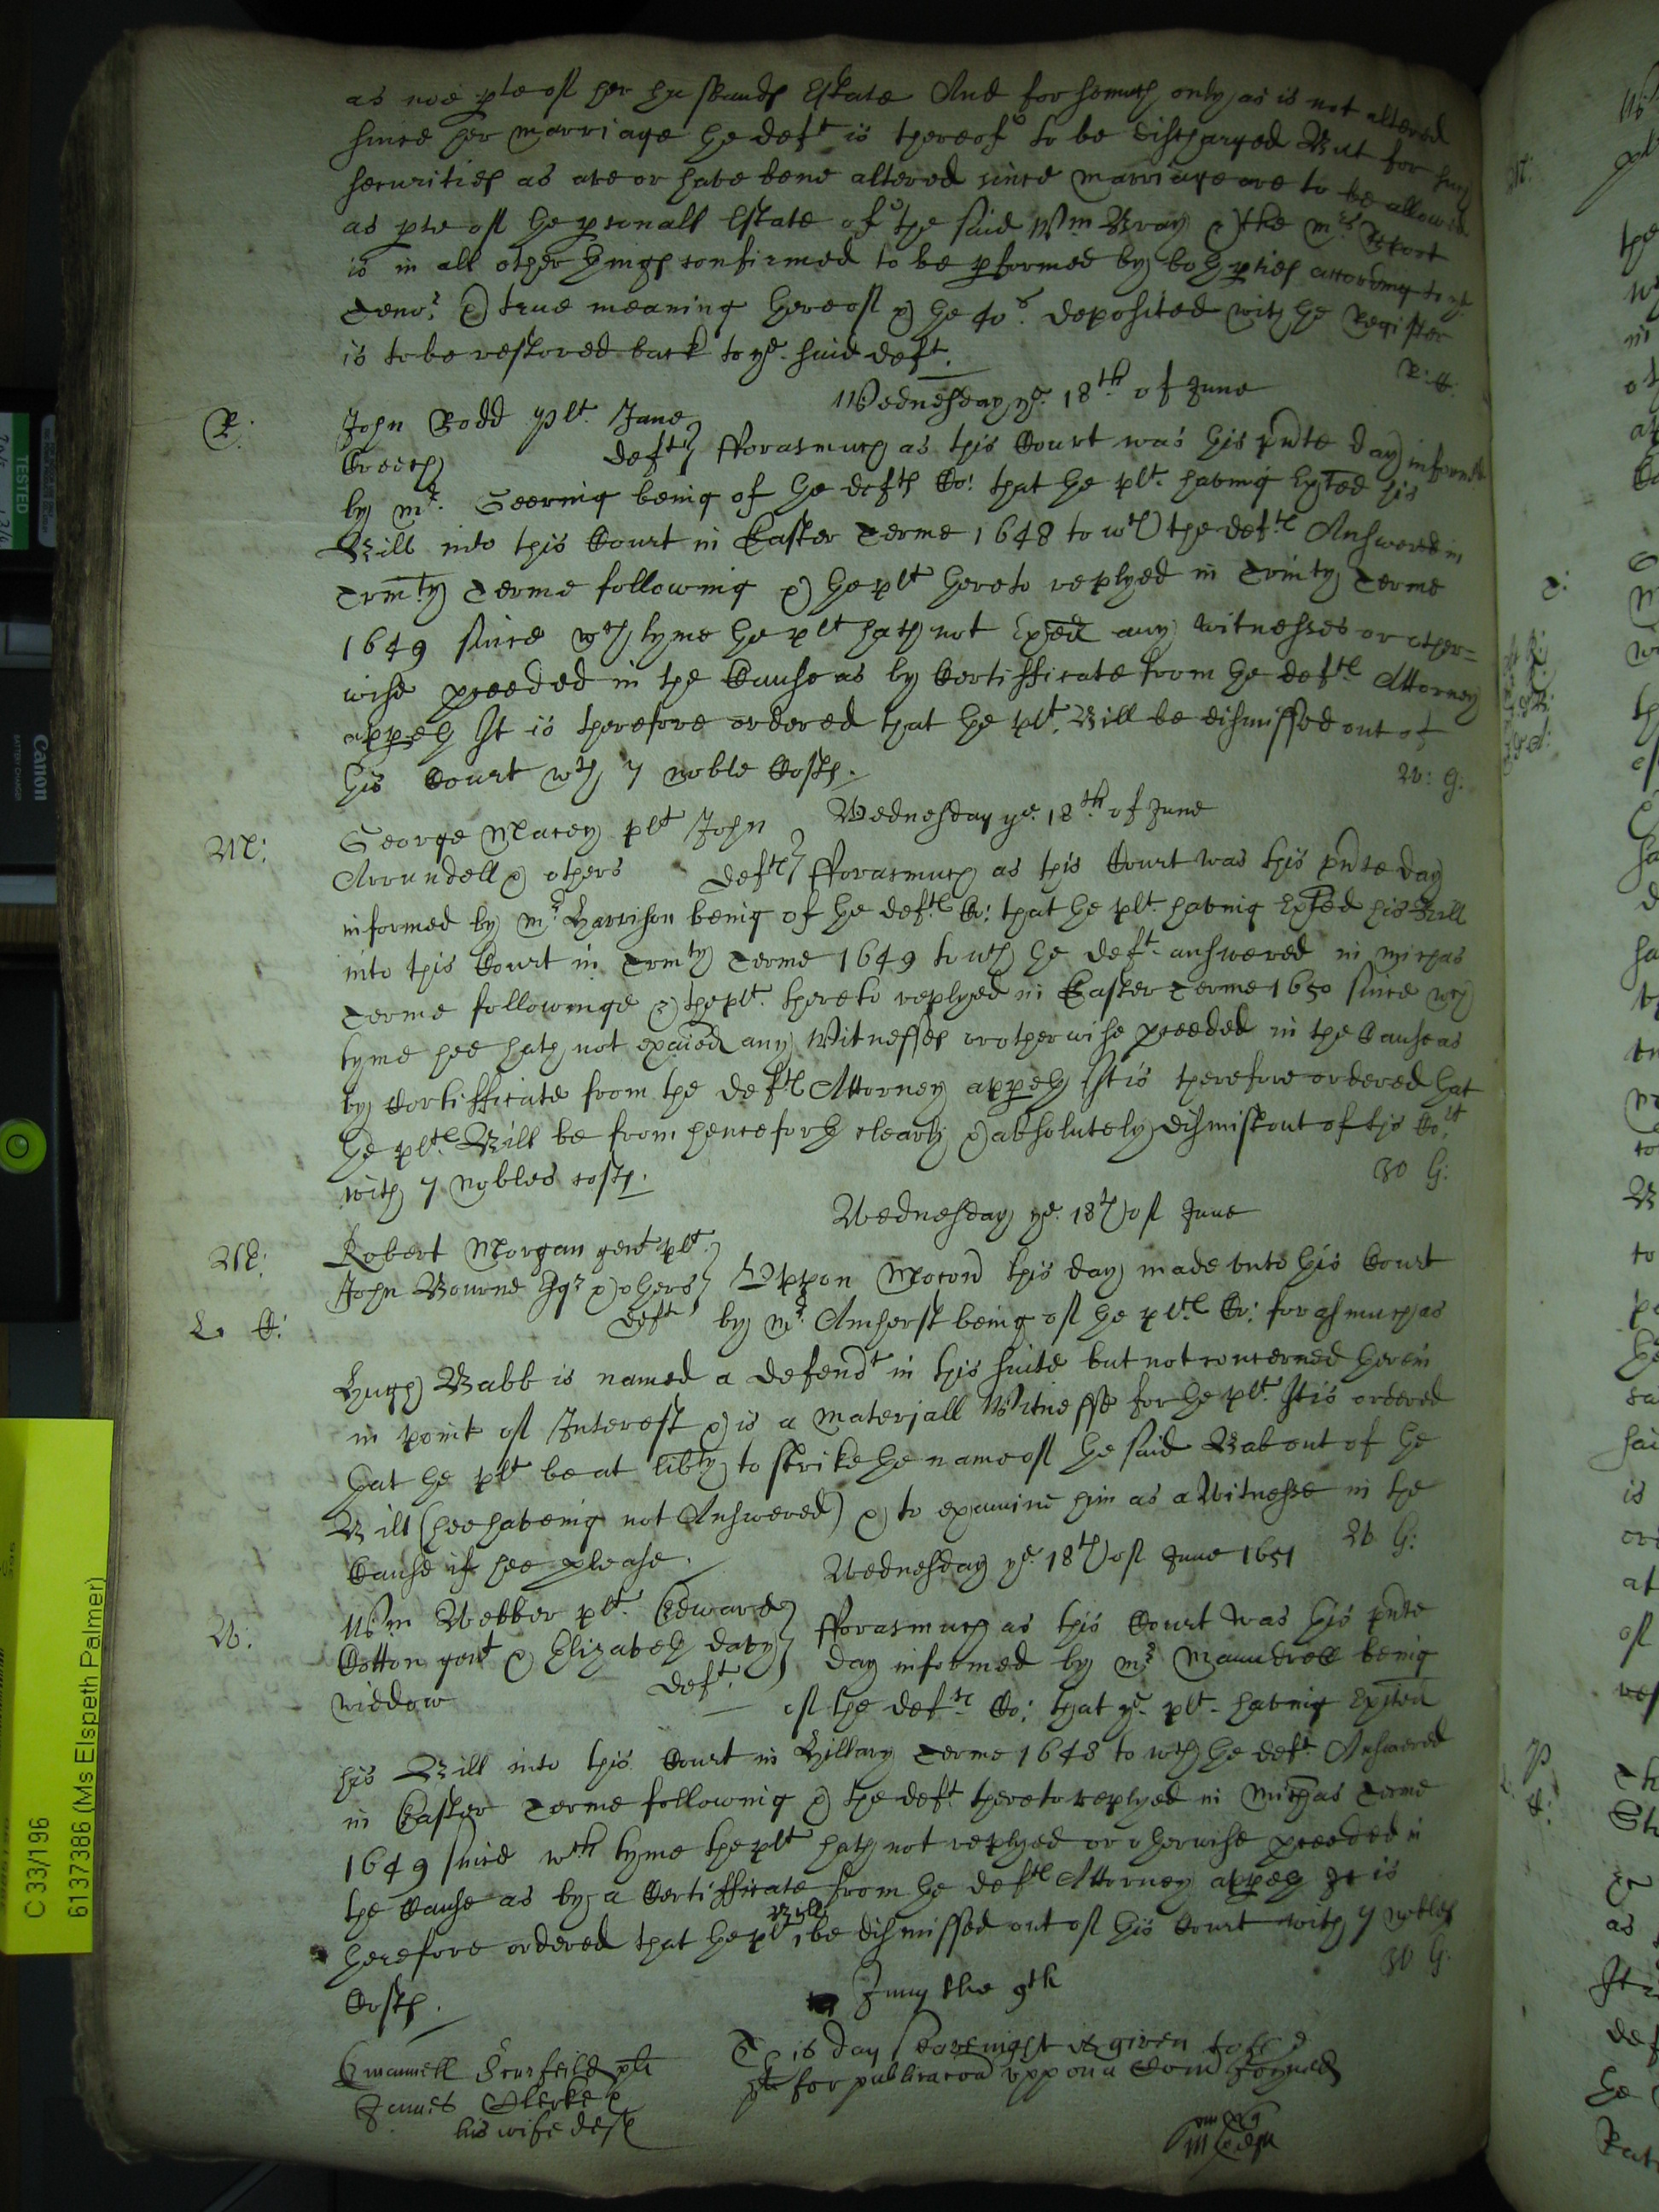 as noe pte of her husbands Estate And for somuch only as is not altered
since her marriage the deft is thereof to be discharged But for such
securities as are or have bene altered since marriage are to be allowed
as pte of the psonall Estate of the said Wm Bray & the Mrs Report
is in all other things confirmed to be pformed by both pties according to ye
Tenor & true meaning thereof & the 40s deposited with the Register
is to be restored back to ye said deft.
Wednesday ye 18th of June
R:
John Rodd plt Jane
Creech deft
fforasmuch as this Court was this pnte day informed
by Mr Geering being of the defts Co: that the plt having Exhited his
Bill into this Court in Easter Terme 1648 to wch the deft Answered in
Trinity Terme following & the plt thereto replyed in Trinity Terme
1649 since wch tyme the plt hath not Exed any witnesses or other=
wise pceeded in the Cause as by Certifficate from the defts Attorney
appeth It is therefore ordered that the plt Bill be dismissed out of
this Court wth 7 noble Costs.
W: G:
Wednesday ye 18th of June
M:
George Macey plt John
Arrundell & others defts
fforasmuch as this Court was this pnte day
informed by Mr Harrison being of the defts Co: that the plt having Exhited his Bill
into this Court in Trinity Terme 1649 to wch the deft answered in Michas
Terme followinge & the plt thereto replyed in Easter Terme 1650 since wch
tyme hee hath not exaied any Witnesses or otherwise pceeded in the Cause as
by Certifficate from the defts Attorney appeth It is therefore ordered that
the plts Bill be from henceforth clearly & absolutely dismist out of this Cort
with 7 nobles costs.
W G:
Wednesday ye 18th of June
M:
Robert Morgan gent plt
John Bourne Esqr & others
deft
Uppon Mocon this day made unto this Court
by Mr Amherst being of the plts Co: forasmuch as
Hugh Babb is named a defendt in this suite but not concerned therein
in point of Interest & is a materiall Witnesse for the plt It is ordered
that the plt be at libty to strike the name of the said Bab out of the
Bill (hee haveing not Answered) & to examine him as a Witnesse in the
Cause if hee please.
W G:
Wednesday ye 18th of June 1651
W:
Wm Webber plt Edward
Cotton gent & Elizabeth Davy
widdow deft
fforasmuch as this Court was this pnte
day informed by Mr Maundrell being
of the defts Co: that ye plt having Exhited
his Bill into this Court in Hillary Terme 1648 to wch the deft Answered
in Easter Terme following & the deft thereto replyed in Michas Terme
1649 since wch tyme the plt hath not replyed or otherwise pceeded in
the Cause as by a Certifficate from the defts Attorney appeth It is
therefore ordered that the plt Bill be dismissed out of this Court with 7 nobles
Costs.
W G:
June the 9th
Emanuell plt
James Clerke &
his wife deft
This day is given to the
plt for publicacon uppon a Com
C 33/196
61137386 (Ms Elspeth Palmer)
TESTED
Canon
BATTERY CHARGER